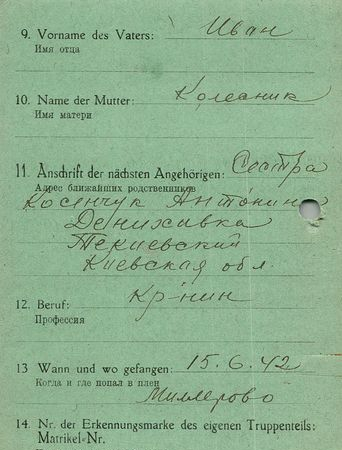 9. Vorname des Vaters: Иван
Имя отца
10. Name der Mutter: Колесник
Имя матери
11. Anschrift der nächsten Angehörigen: Сестра
Адрес ближайших родственников
Косенчук Антонина
Денихивка
Текиевский
Киевская обл.
12. Beruf: кр-нин
Профессия
13 Wann und wo gefangen: 15.6.42
Когда и где попал в плен
Миллерово
14. Nr. der Erkennungsmarke des eigenen Truppenteils:
Matrikel-Nr.